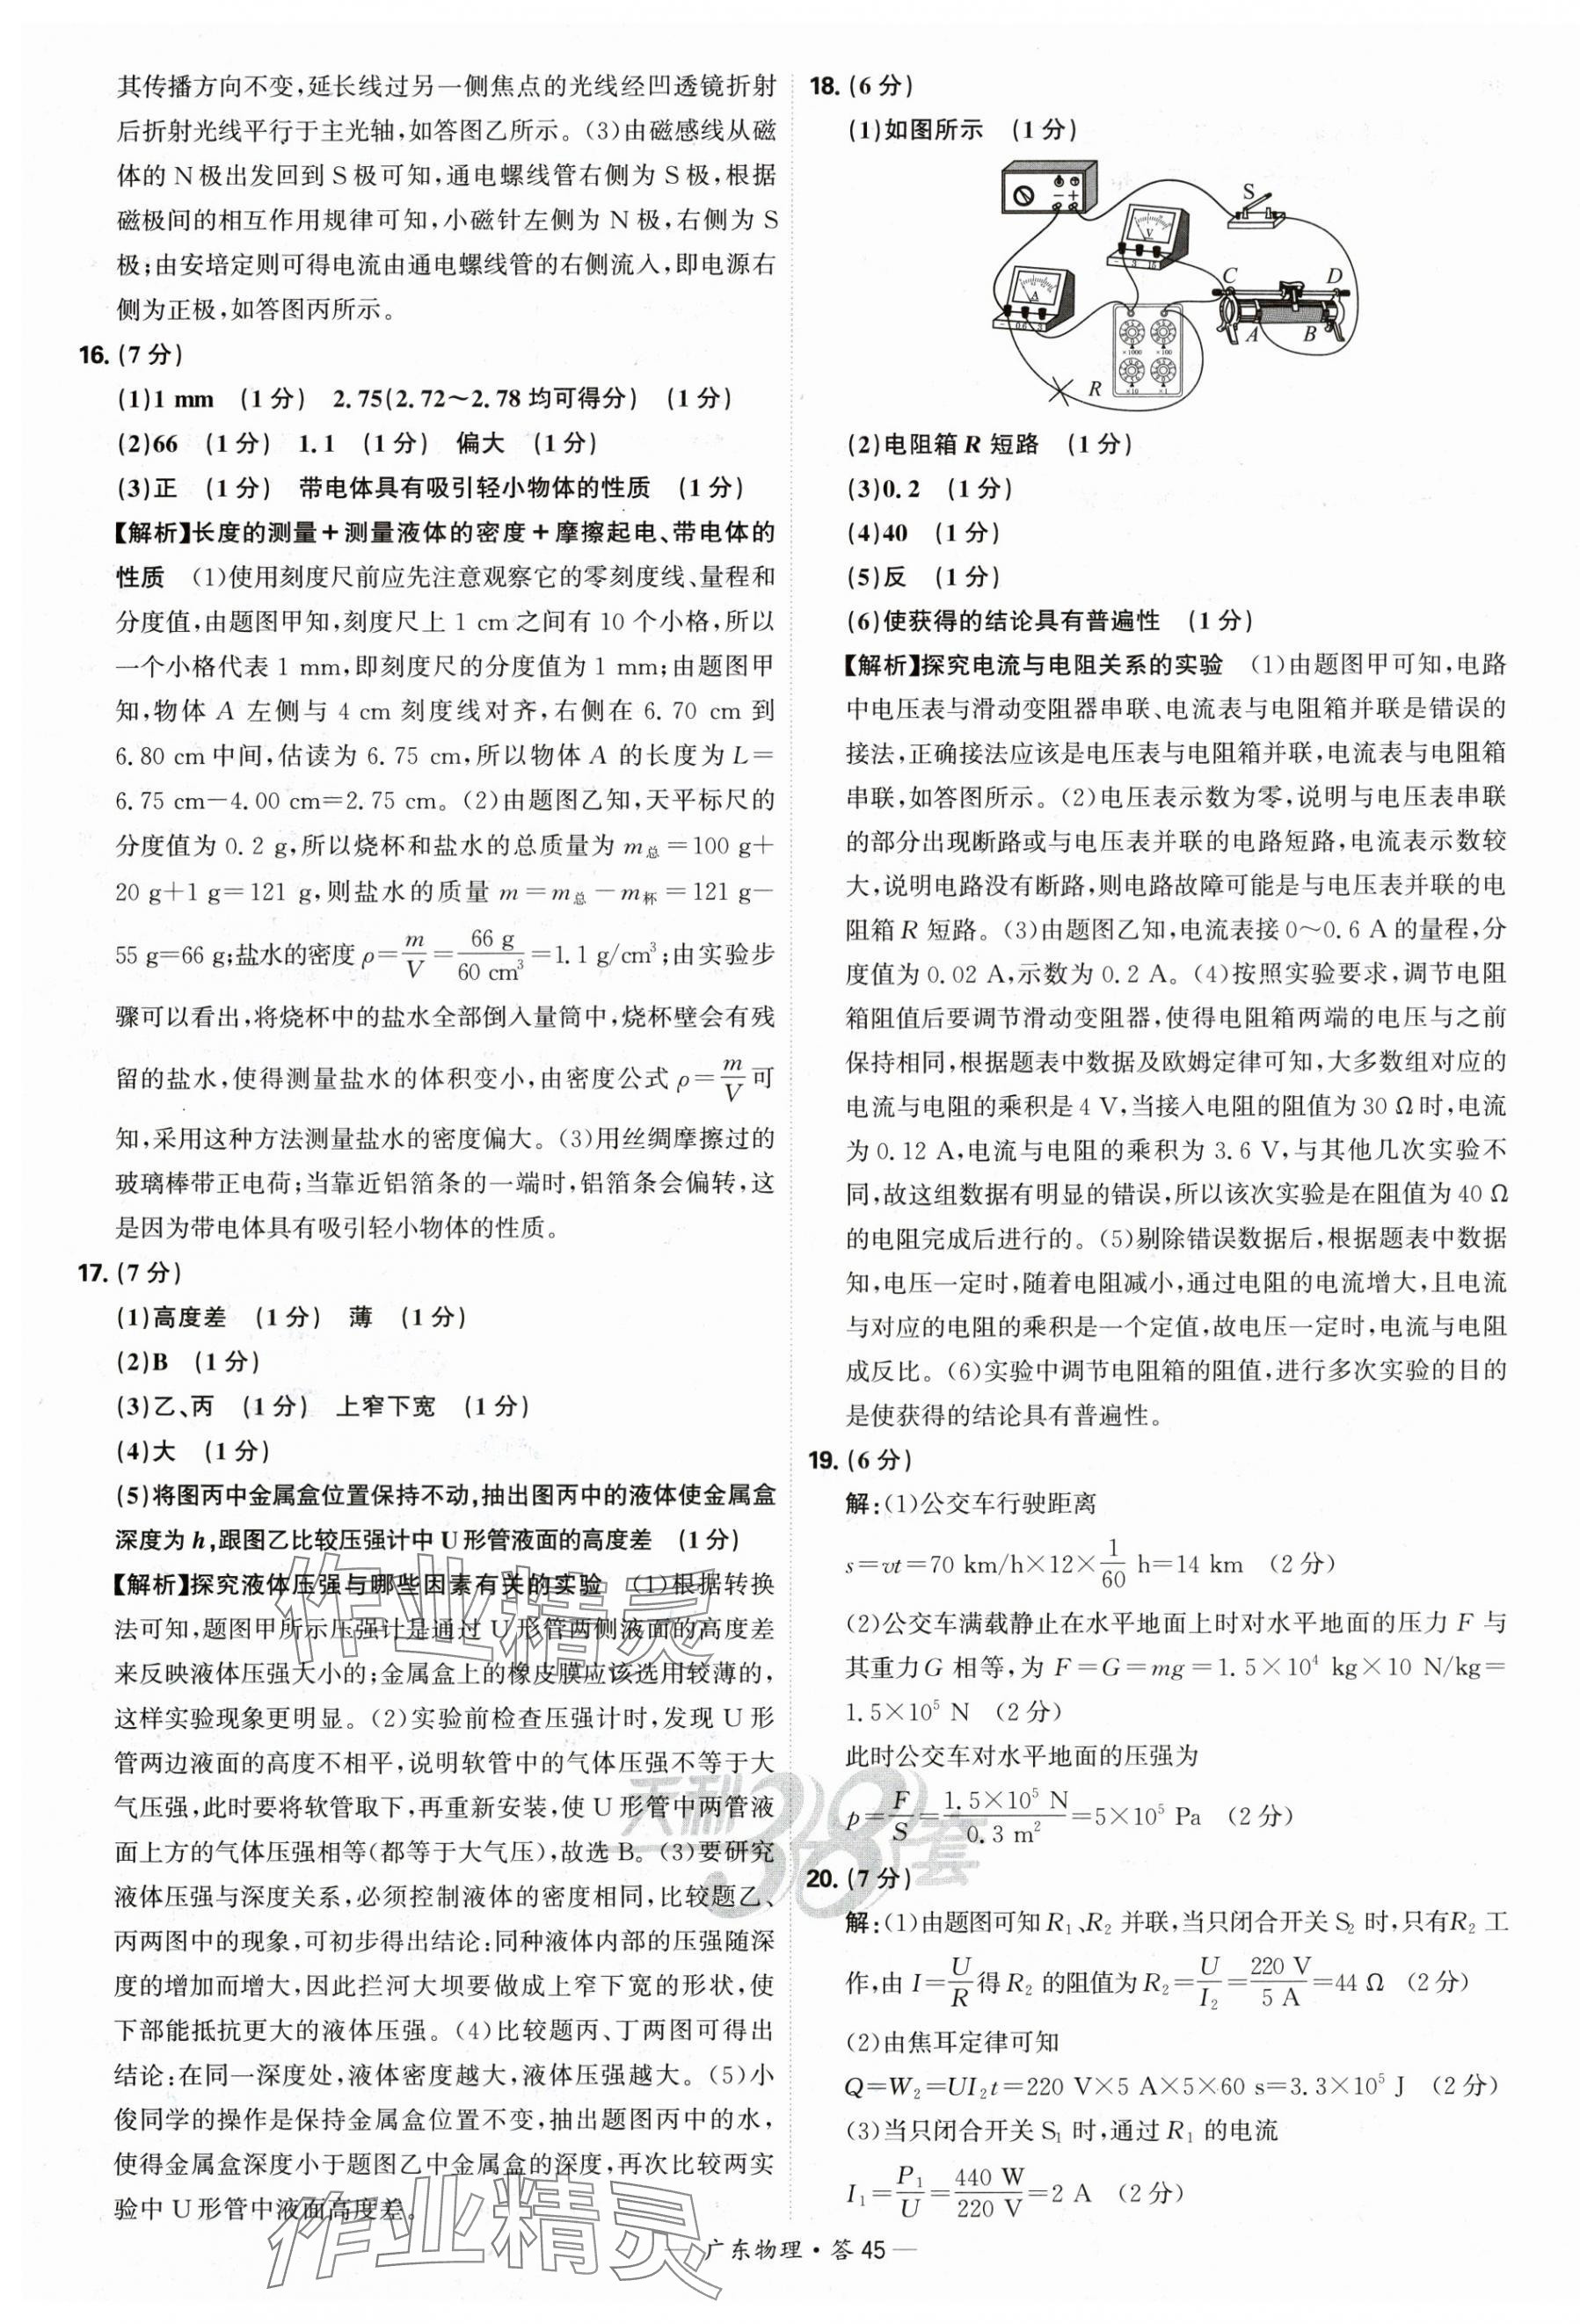 其传播方向不变,延长线过另一侧焦点的光线经凹透镜折射
后折射光线平行于主光轴,如答图乙所示。(3)由磁感线从磁
体的 N 极出发回到 S 极可知,通电螺线管右侧为 S 极,根据
磁极间的相互作用规律可知,小磁针左侧为 N 极,右侧为 S
极;由安培定则可得电流由通电螺线管的右侧流入,即电源右
侧为正极,如答图丙所示。
16. (7 分)
(1)1 mm (1 分) 2.75(2.72～2.78 均可得分) (1 分)
(2)66 (1 分) 1.1 (1 分) 偏大 (1 分)
(3)正 (1 分) 带电体具有吸引轻小物体的性质 (1 分)
【解析】长度的测量+测量液体的密度+摩擦起电、带电体的
性质 (1)使用刻度尺前应先注意观察它的零刻度线、量程和
分度值,由题图甲知,刻度尺上 1 cm 之间有 10 个小格,所以
一个小格代表 1 mm,即刻度尺的分度值为 1 mm;由题图甲
知,物体 A 左侧与 4 cm 刻度线对齐,右侧在 6.70 cm 到
6.80 cm 中间,估读为 6.75 cm,所以物体 A 的长度为 L=
6.75 cm-4.00 cm=2.75 cm。(2)由题图乙知,天平标尺的
分度值为 0.2 g,所以烧杯和盐水的总质量为 m总=100 g+
20 g+1 g=121 g,则盐水的质量 m=m总-m杯=121 g-
55 g=66 g;盐水的密度 ρ=m/V=66 g/60 cm³=1.1 g/cm³;由实验步
骤可以看出,将烧杯中的盐水全部倒入量筒中,烧杯壁会有残
留的盐水,使得测量盐水的体积变小,由密度公式 ρ=m/V 可
知,采用这种方法测量盐水的密度偏大。(3)用丝绸摩擦过的
玻璃棒带正电荷;当靠近铝箔条的一端时,铝箔条会偏转,这
是因为带电体具有吸引轻小物体的性质。
17. (7 分)
(1)高度差 (1 分) 薄 (1 分)
(2)B (1 分)
(3)乙、丙 (1 分) 上窄下宽 (1 分)
(4)大 (1 分)
(5)将图丙中金属盒位置保持不动,抽出图丙中的液体使金属盒
深度为 h,跟图乙比较压强计中 U 形管液面的高度差 (1 分)
【解析】探究液体压强与哪些因素有关的实验 (1)根据转换
法可知,题图甲所示压强计是通过 U 形管两侧液面的高度差
来反映液体压强大小的;金属盒上的橡皮膜应该选用较薄的,
这样实验现象更明显。(2)实验前检查压强计时,发现 U 形
管两边液面的高度不相平,说明软管中的气体压强不等于大
气压强,此时要将软管取下,再重新安装,使 U 形管中两管液
面上方的气体压强相等(都等于大气压),故选 B。(3)要研究
液体压强与深度关系,必须控制液体的密度相同,比较题乙、
丙两图中的现象,可初步得出结论:同种液体内部的压强随深
度的增加而增大,因此拦河大坝要做成上窄下宽的形状,使
下部能抵抗更大的液体压强。(4)比较题丙、丁两图可得出
结论:在同一深度处,液体密度越大,液体压强越大。(5)小
俊同学的操作是保持金属盒位置不变,抽出题图丙中的水,
使得金属盒深度小于题图乙中金属盒的深度,再次比较两实
验中 U 形管中液面高度差。
18. (6 分)
(1)如图所示 (1 分)
S
V
- 3 15
C D
A
- 0.6 3
A B
×1000 ×100
R ×10 ×1
(2)电阻箱 R 短路 (1 分)
(3)0.2 (1 分)
(4)40 (1 分)
(5)反 (1 分)
(6)使获得的结论具有普遍性 (1 分)
【解析】探究电流与电阻关系的实验 (1)由题图甲可知,电路
中电压表与滑动变阻器串联、电流表与电阻箱并联是错误的
接法,正确接法应该是电压表与电阻箱并联,电流表与电阻箱
串联,如答图所示。(2)电压表示数为零,说明与电压表串联
的部分出现断路或与电压表并联的电路短路,电流表示数较
大,说明电路没有断路,则电路故障可能是与电压表并联的电
阻箱 R 短路。(3)由题图乙知,电流表接 0～0.6 A 的量程,分
度值为 0.02 A,示数为 0.2 A。(4)按照实验要求,调节电阻
箱阻值后要调节滑动变阻器,使得电阻箱两端的电压与之前
保持相同,根据题表中数据及欧姆定律可知,大多数组对应的
电流与电阻的乘积是 4 V,当接入电阻的阻值为 30 Ω 时,电流
为 0.12 A,电流与电阻的乘积为 3.6 V,与其他几次实验不
同,故这组数据有明显的错误,所以该次实验是在阻值为 40 Ω
的电阻完成后进行的。(5)剔除错误数据后,根据题表中数据
知,电压一定时,随着电阻减小,通过电阻的电流增大,且电流
与对应的电阻的乘积是一个定值,故电压一定时,电流与电阻
成反比。(6)实验中调节电阻箱的阻值,进行多次实验的目的
是使获得的结论具有普遍性。
19. (6 分)
解:(1)公交车行驶距离
s=vt=70 km/h×12×1/60 h=14 km (2 分)
(2)公交车满载静止在水平地面上时对水平地面的压力 F 与
其重力 G 相等,为 F=G=mg=1.5×10⁴ kg×10 N/kg=
1.5×10⁵ N (2 分)
此时公交车对水平地面的压强为
p=F/S=1.5×10⁵ N/0.3 m²=5×10⁵ Pa (2 分)
20. (7 分)
解:(1)由题图可知 R₁、R₂ 并联,当只闭合开关 S₂ 时,只有R₂ 工
作,由 I=U/R 得 R₂ 的阻值为 R₂=U/I₂=220 V/5 A=44 Ω (2 分)
(2)由焦耳定律可知
Q=W₂=UI₂t=220 V×5 A×5×60 s=3.3×10⁵ J (2 分)
(3)当只闭合开关 S₁ 时,通过 R₁ 的电流
I₁=P₁/U=440 W/220 V=2 A (2 分)
作业精灵
天利38套
作业精灵
广东物理·答 45 —